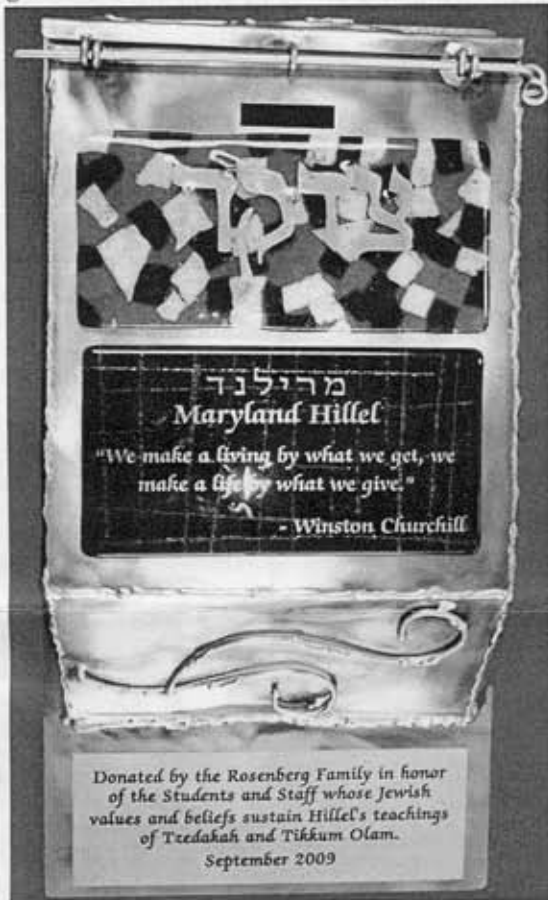 צדקה
מרילנד
Maryland Hillel
"We make a living by what we get, we
make a life by what we give."
- Winston Churchill
Donated by the Rosenberg Family in honor
of the Students and Staff whose Jewish
values and beliefs sustain Hillel's teachings
of Tzedakah and Tikkum Olam.
September 2009